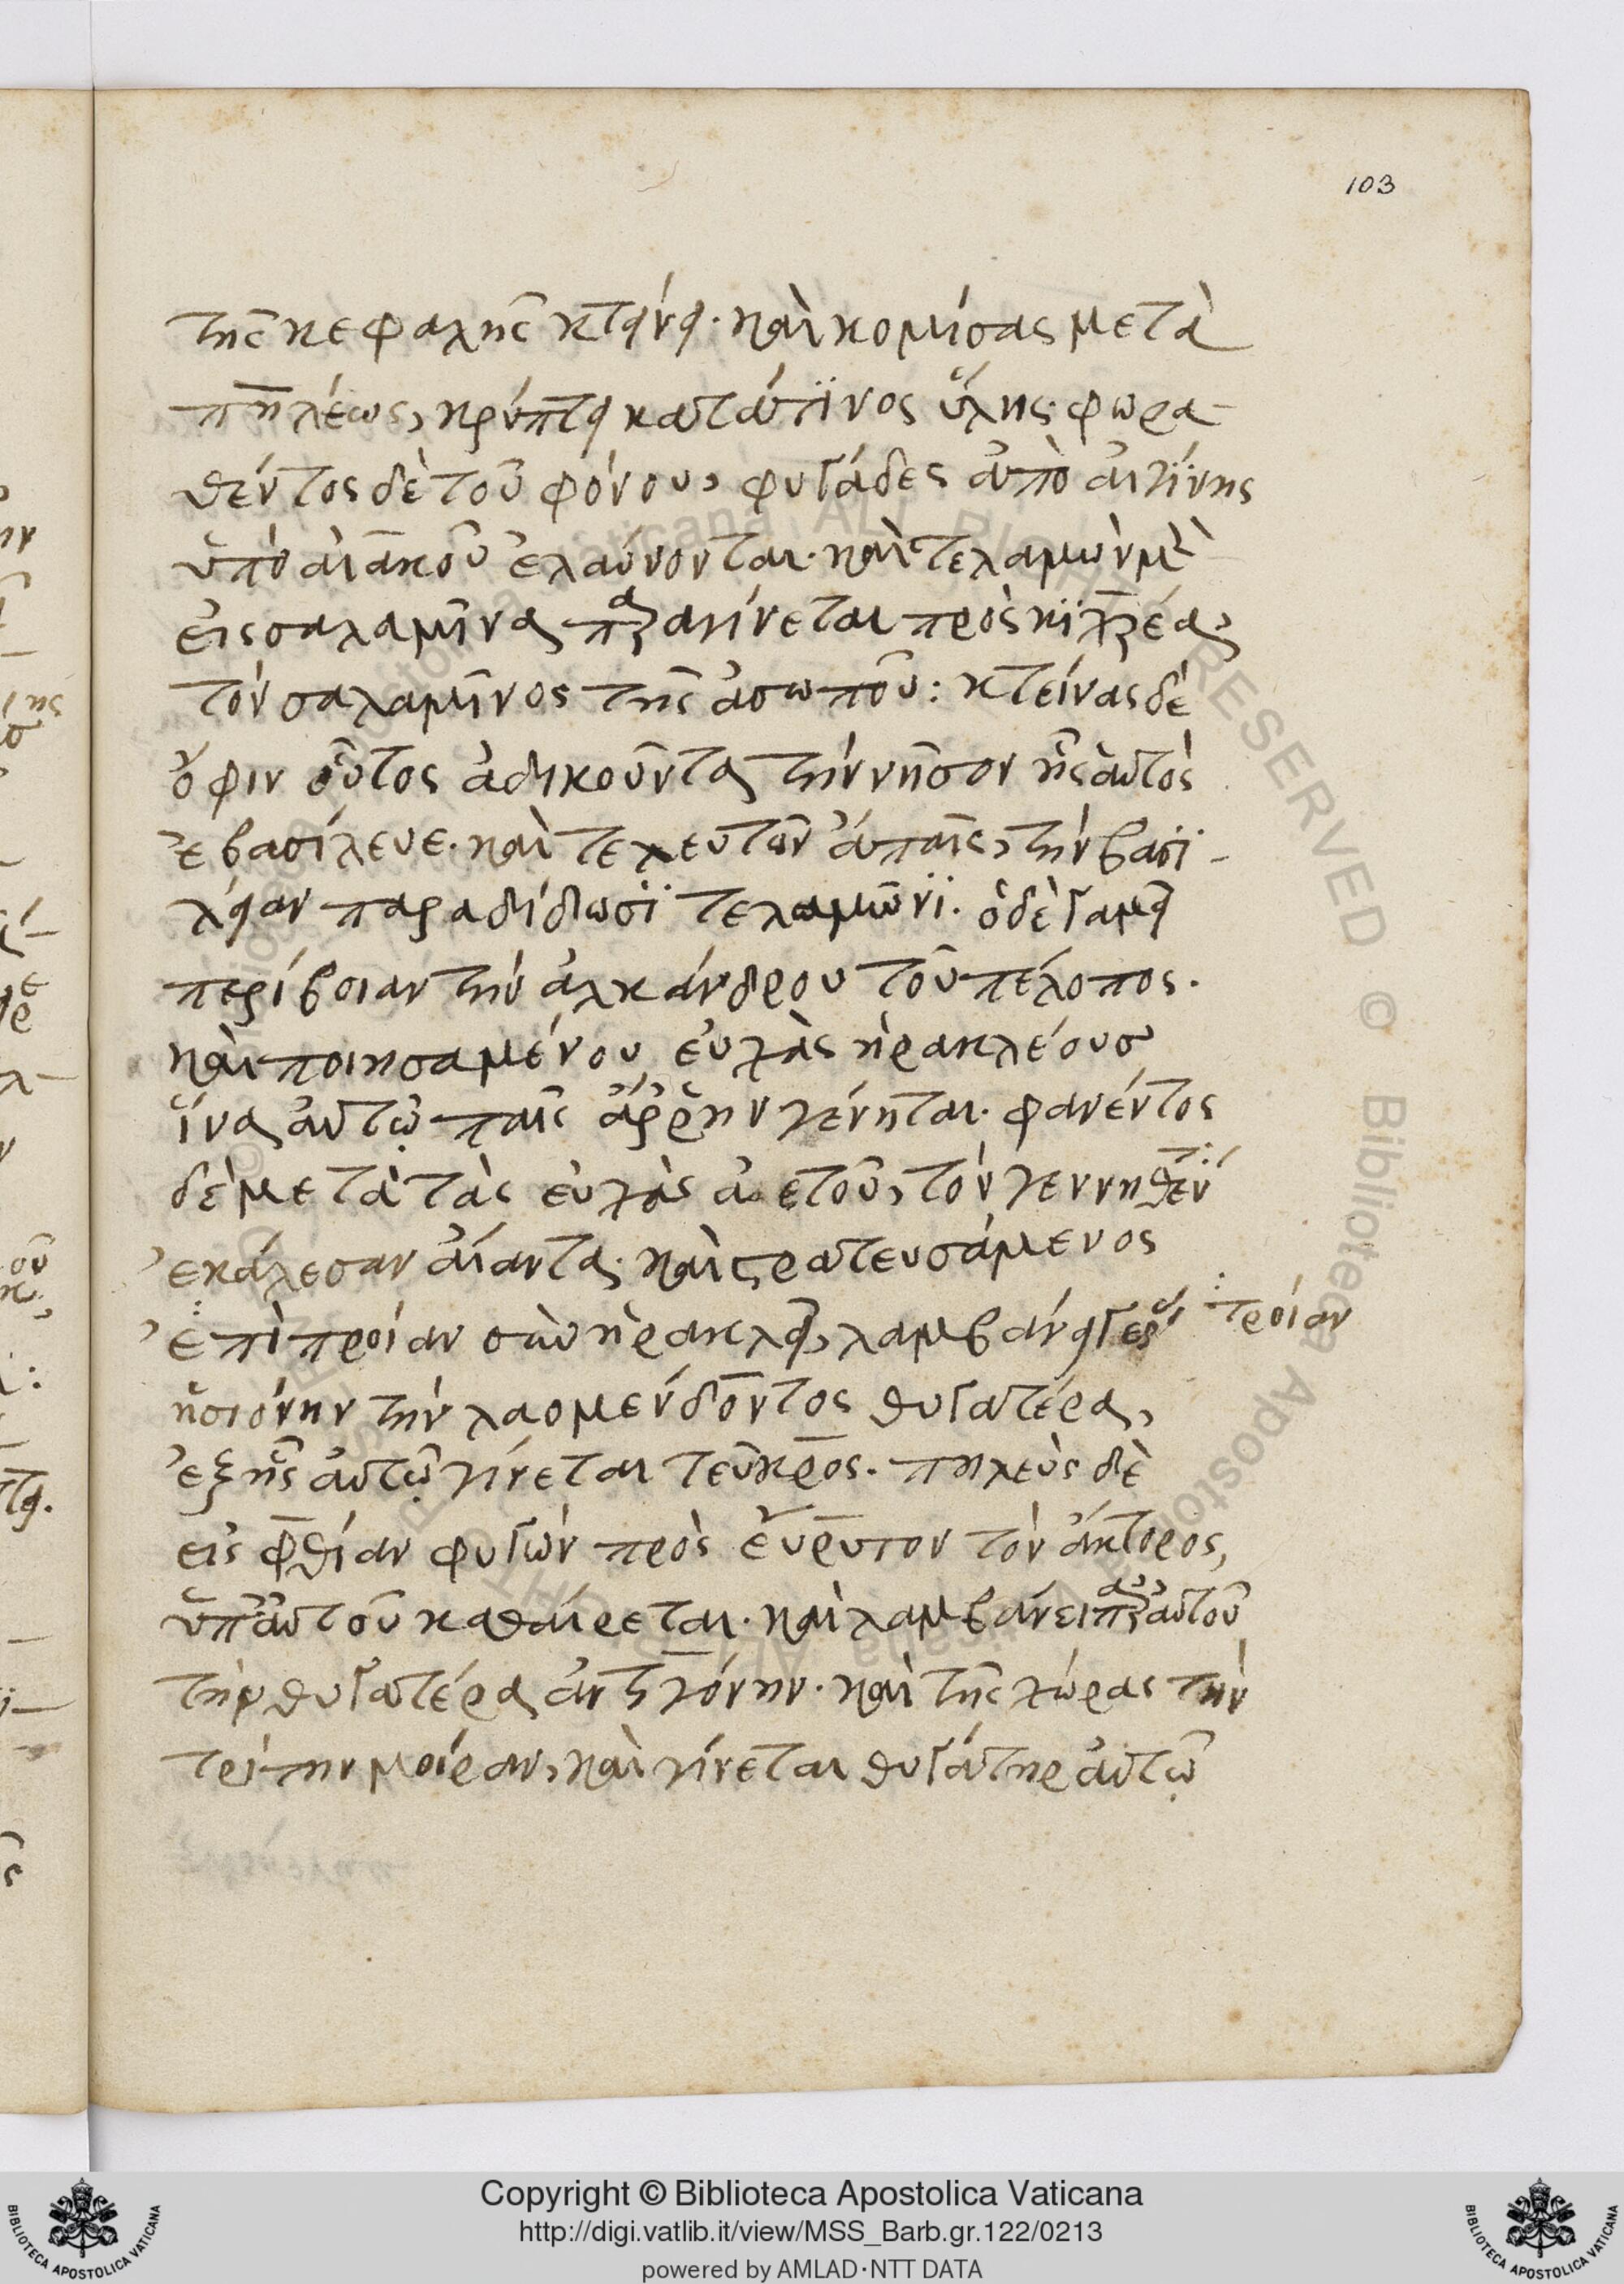 103
τῆς κεφαλῆς κτείνει· καὶ κομίσας μετὰ
πηλέως, κρύπτει κατά τϊνος ὕλης· φωρα-
θέντος δὲ τοῦ φόνου, φυγάδες ἀπὸ αἰγίνης
ὑπὸ αἰακοῦ ἐλαύνονται· καὶ τελαμὼν μὲν
εἰς σαλαμῖνα παραγίνεται πρὸς κϊχρέα,
τὸν σαλαμῖνος τῆς ἀσωποῦ: κτείνας δὲ
ὄφιν οὗτος ἀδικοῦντα τὴν νῆσον ἧς αὐτὸς
ἐβασίλευε· καὶ τελευτῶν ἄπαις, τὴν βασϊ-
λείαν παραδίδωσϊ τελαμῶνϊ. ὁ δὲ γαμεῖ
περίβοιαν τὴν ἀλκάνδρου τοῦ πέλοπος.
καὶ ποιησαμένου εὐχὰς ἡρακλέους
ἵνα αὐτῷ παῖς ἄῤῥην γένηται· φανέντος
δὲ μετὰ τὰς εὐχὰς ἀετοῦ, τὸν γεννηθέντ
ἐκάλεσαν αἴαντα· καὶ στρατευσάμενος
ἐπὶ προίαν σὺν ἡρακλεῖ, λαμβάνει γέρας
τροίαν
ἡσιόνην τὴν λαομέδοντος θυγατέρα,
ἐξ ἧς αὐτῷ γίνεται τεῦκρος. πηλεὺς δὲ
εἰς φθίαν φυγὼν πρὸς εὔρυτον τὸν ἄκτορος,
ὑπ' αὐτοῦ καθαίρεται· καὶ λαμβάνει παρ' αὐτοῦ
τὴν θυγατέρα ἀντιγόνην· καὶ τῆς χώρας τὴν
τρίτην μοίραν, καὶ γίνεται θυγάτηρ αὐτῷ
Copyright © Biblioteca Apostolica Vaticana
http://digi.vatlib.it/view/MSS_Barb.gr.122/0213
powered by AMLAD·NTT DATA